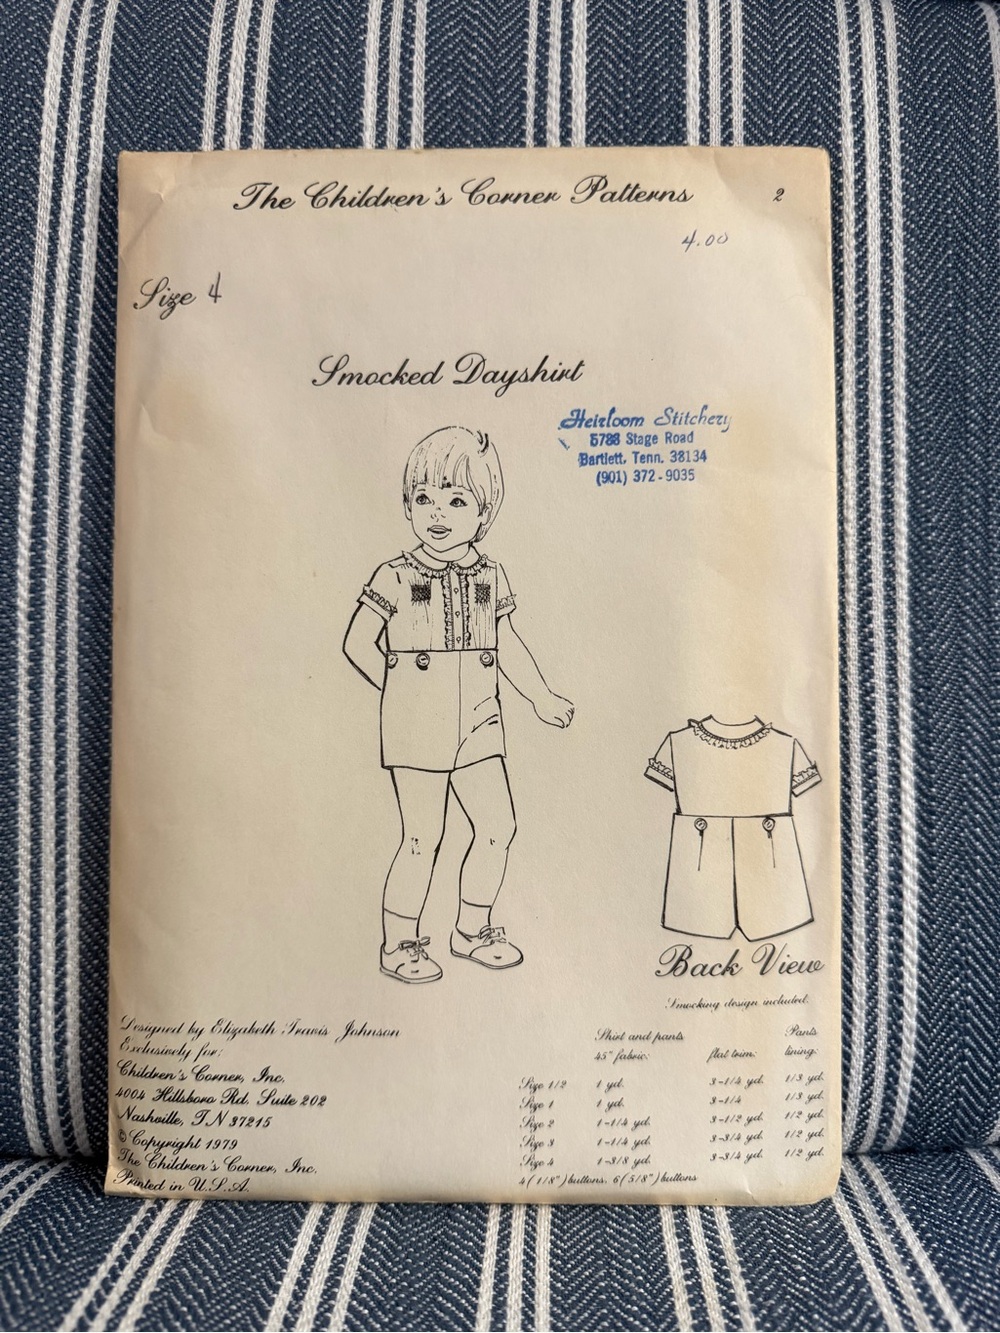 The Children's Corner Patterns 2
4.00
Size 4
Smocked Dayshirt
Heirloom Stitchery
5788 Stage Road
Bartlett, Tenn. 38134
(901) 372-9035
Back View
Smocking design included.
Designed by Elizabeth Travis Johnson
Exclusively for:
Children's Corner, Inc.
4004 Hillsboro Rd. Suite 202
Nashville, TN 37215
© Copyright 1979
The Children's Corner, Inc.
Printed in U.S.A.
Shirt and pants Pants
45" fabric: flat trim: lining:
Size 1/2 1 yd. 3-1/4 yd. 1/3 yd.
Size 1 1 yd. 3-1/4 1/3 yd.
Size 2 1-1/4 yd. 3-1/2 yd. 1/2 yd.
Size 3 1-1/4 yd. 3-3/4 yd. 1/2 yd.
Size 4 1-3/8 yd. 3-3/4 yd. 1/2 yd.
4(1/8") buttons, 6(5/8") buttons